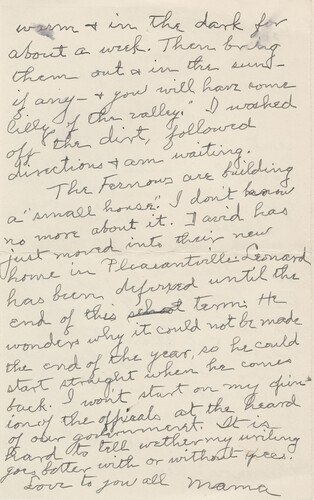 warm & in the dark for
about a week. Then bring
them out & in the sun-
if any- & you will have some
"lilly of the valley." I washed
off the dirt, followed
directions & am waiting.
The Fernous are building
a "small house". I don't know
no more about it. David has
just moved into their new
home in Pleasantville. Leonard
has been deferred until the
end of this term. He
wonders why it could not be made
the end of the year, so he could
start straight when he comes
back. I wont start on my opin-
ions of the offisals at the heard
of our government. It is
hard to tell wether my writing
goes better with or without specs.
Love to you all Mama